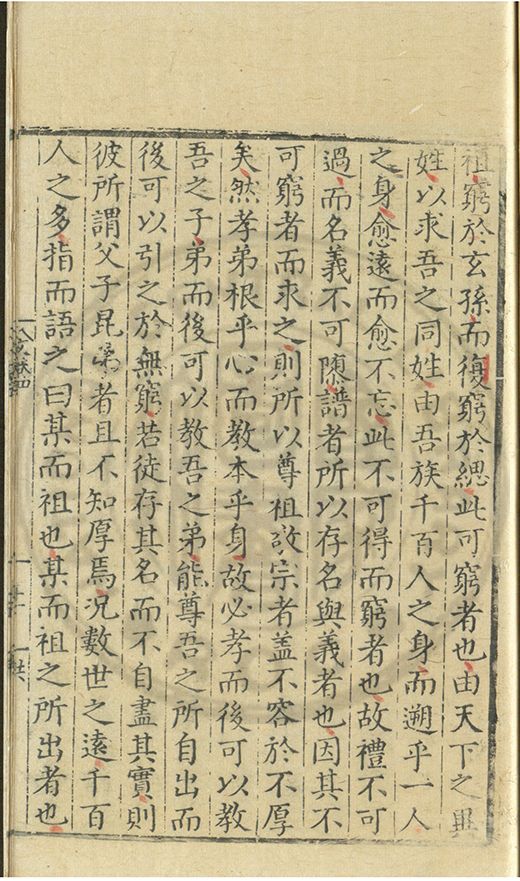 祖窮於玄孫而復窮於緦此可窮者也由天下之異
姓以求吾之同姓由吾族千百人之身而遡乎一人
之身愈遠而愈不忘此不可得而窮者也故禮不可
過而名義不可隳譜者所以存名與義者也因其不
可窮者而求之則所以尊祖敬宗者盖不容於不厚
矣然孝弟根乎心而教本乎身故必孝而後可以教
吾之子弟而後可以教吾之弟能尊吾之所自出而
後可以引之於無窮若徒存其名而不自盡其實則
彼所謂父子昆弟者且不知厚焉况數世之遠千百
人之多指而語之曰某而祖也某而祖之所出者也